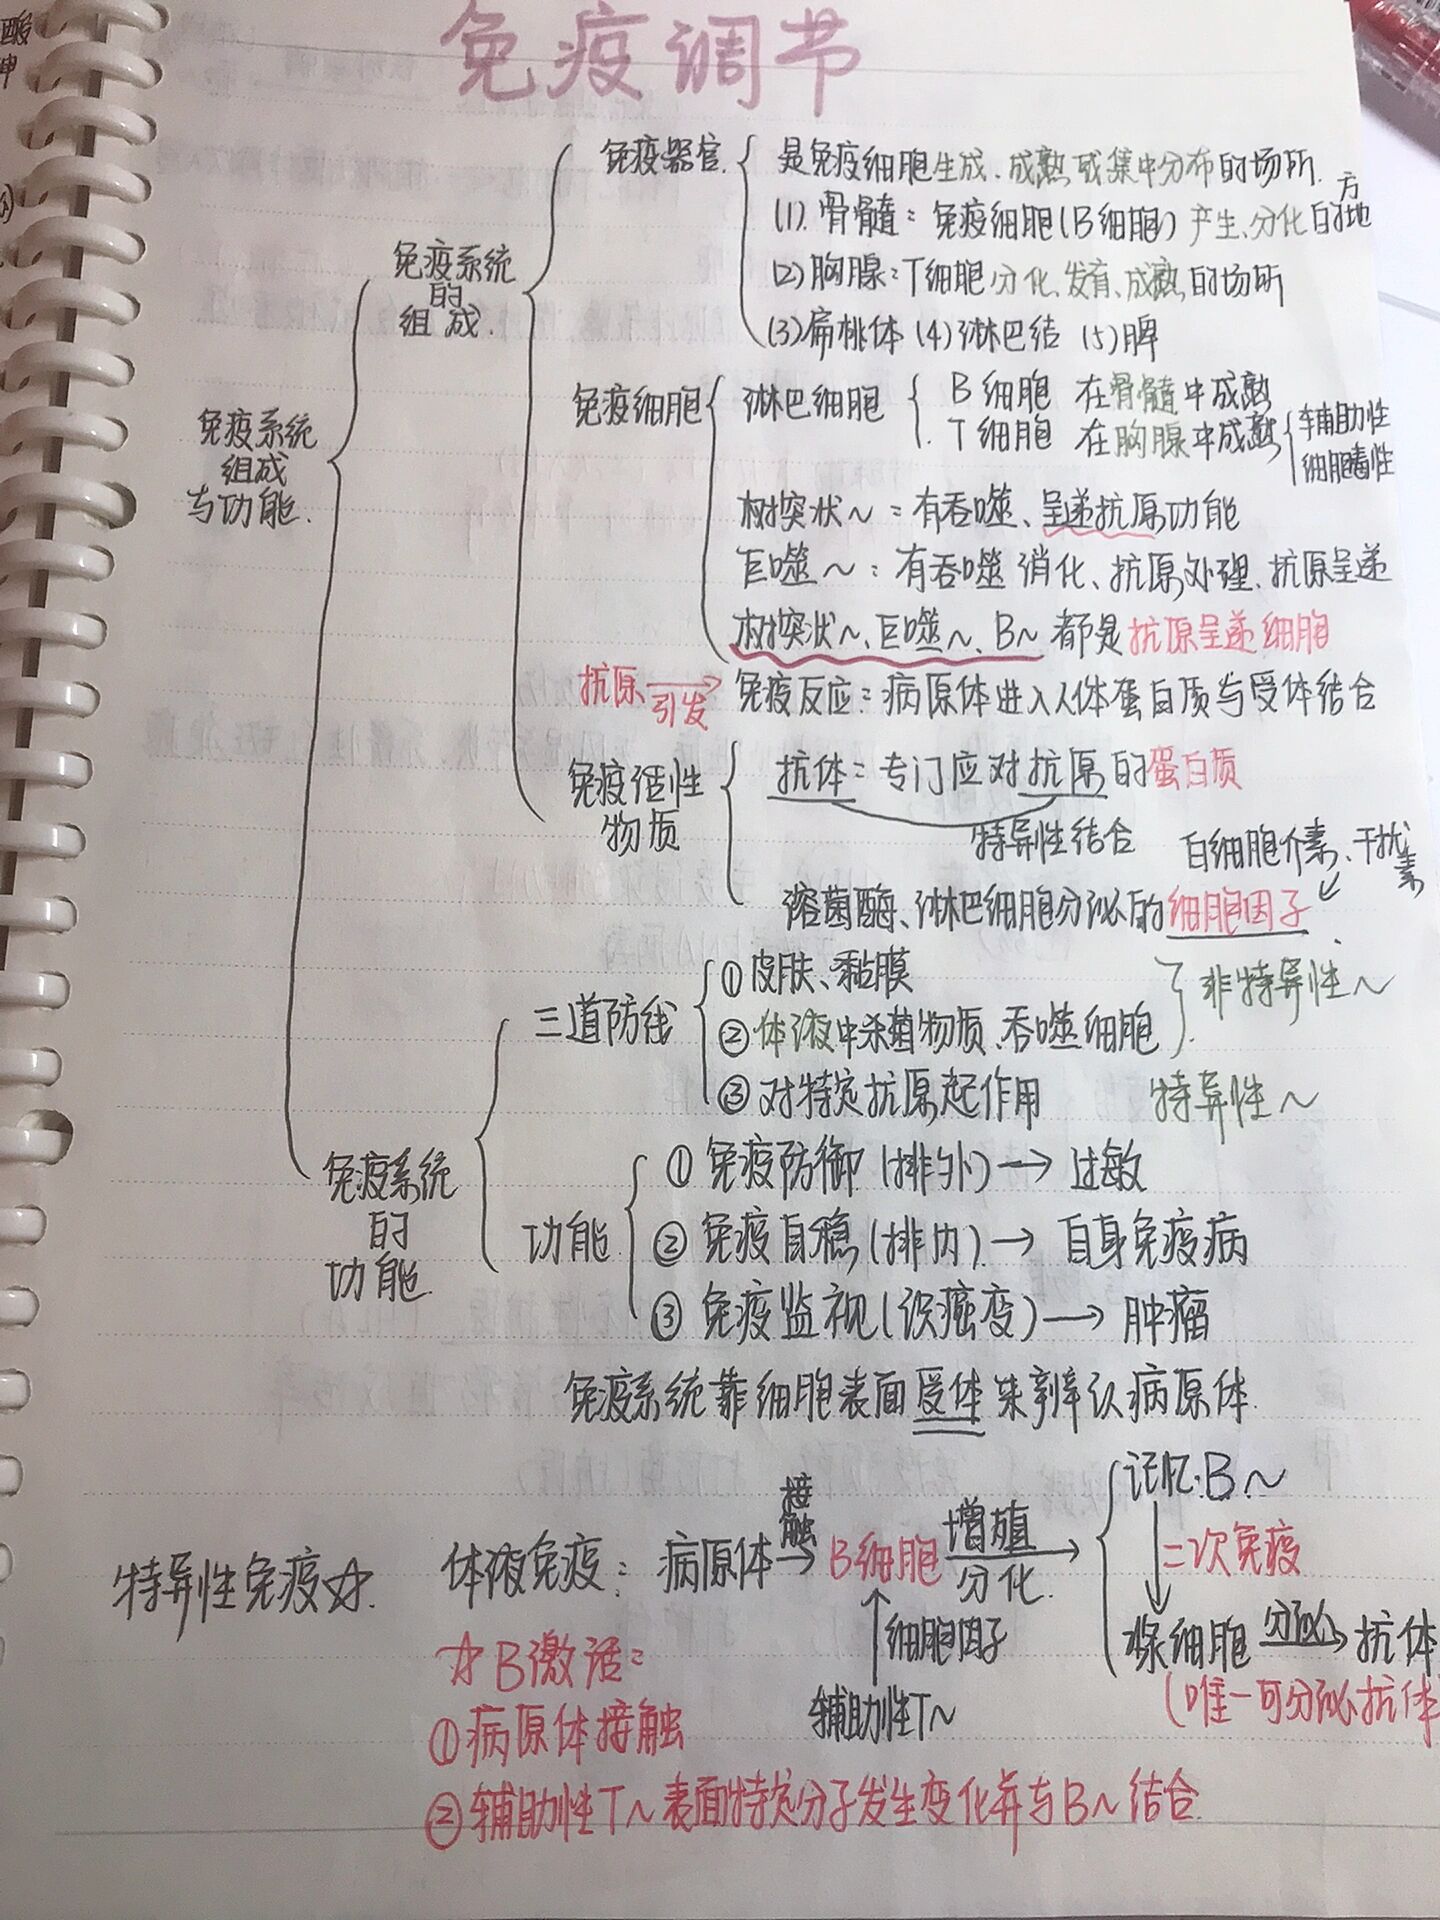 免疫调节
免疫系统
组成
与功能.
免疫系统
的
组成.
免疫器官.
是免疫细胞生成、成熟或集中分布的场所.
(1). 骨髓: 免疫细胞(B细胞) 产生、分化的地方
(2) 胸腺: T细胞 分化、发育、成熟 的场所
(3) 扁桃体 (4) 淋巴结 (5) 脾
免疫细胞
淋巴细胞
B 细胞 在骨髓中成熟
T 细胞 在胸腺中成熟
辅助性
细胞毒性
树突状~: 有吞噬、呈递抗原功能
巨噬~: 有吞噬消化、抗原处理、抗原呈递
树突状~、巨噬~、B~ 都是抗原呈递细胞
抗原 引发 免疫反应: 病原体进入人体蛋白质与受体结合
免疫活性
物质
抗体: 专门应对抗原的蛋白质
特异性结合
白细胞介素、干扰素
溶菌酶、淋巴细胞分泌的细胞因子
免疫系统
的
功能.
三道防线
①皮肤、黏膜
②体液中杀菌物质、吞噬细胞
非特异性~
③对特定抗原起作用 特异性~
功能
① 免疫防御 (排外) → 过敏
② 免疫自稳 (排内) → 自身免疫病
③ 免疫监视 (识癌变) → 肿瘤
免疫系统靠细胞表面受体来辨认病原体.
特异性免疫☆.
体液免疫: 病原体 接触→ B细胞 增殖 分化.→
记忆B~
↓二次免疫
浆细胞 分泌→ 抗体
(唯一可分泌抗体
↑细胞因子
辅助性T~
☆B激活:
①病原体接触
②辅助性T~表面特定分子发生变化并与B~结合.